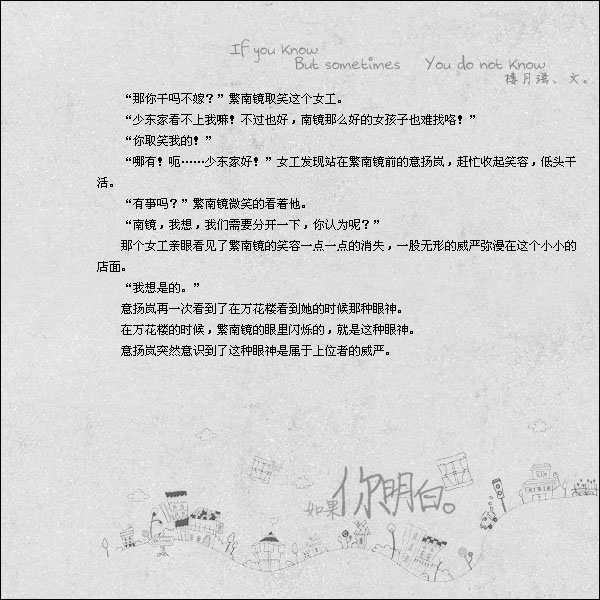 If you Know
But sometimes You do not Know
楼月瑶、文。
“那你干吗不嫁？”繁南镜取笑这个女工。
“少东家看不上我嘛！不过也好，南镜那么好的女孩子也难找咯！”
“你取笑我的！”
“哪有！呃……少东家好！”女工发现站在繁南镜前的意扬岚，赶忙收起笑容，低头干
活。
“有事吗？”繁南镜微笑的看着他。
“南镜，我想，我们需要分开一下，你认为呢？”
那个女工亲眼看见了繁南镜的笑容一点一点的消失，一股无形的威严弥漫在这个小小的
店面。
“我想是的。”
意扬岚再一次看到了在万花楼看到她的时候那种眼神。
在万花楼的时候，繁南镜的眼里闪烁的，就是这种眼神。
意扬岚突然意识到了这种眼神是属于上位者的威严。
如果你明白。